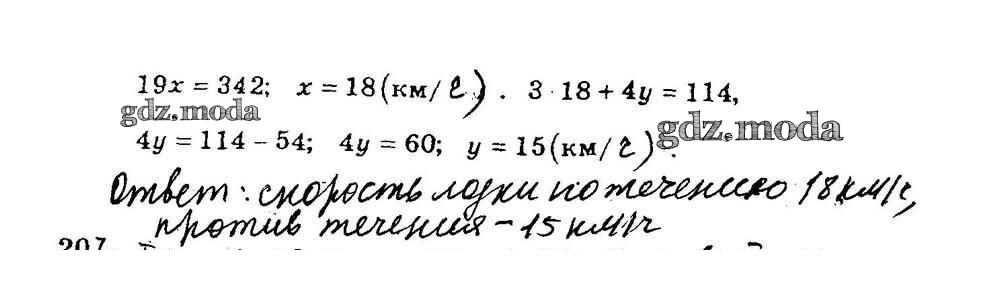 19x = 342; x = 18(км/г). 3·18 + 4y = 114,
gdz.moda
4y = 114 – 54; 4y = 60; y = 15(км/г).
gdz.moda
Ответ: скорость лодки по течению 18 км/ч,
против течения – 15 км/ч
207